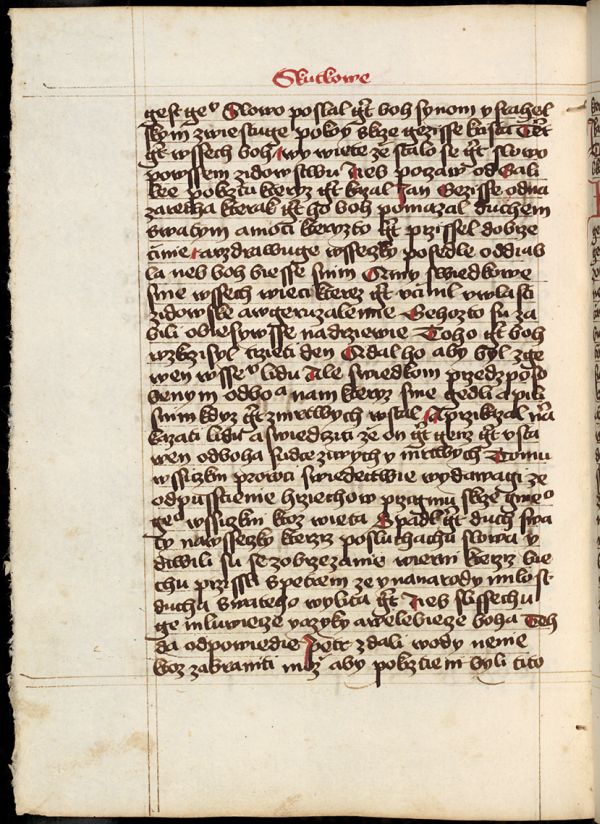 Skutkowe
gest geᵒ Slowo poslal gt boh synom yzrahel
skym zwiestuge pokoy skrze gezisse krista Tet
gt wssech boh wy wiete ze stalo se gt slowo
powssem zidowstwu Neb pozaw od Gali
lee po krztu kteryz gt kazal Jan Gezisse odna
zaretha kterak gt ho boh pomazal duchem
swatym a moci kteryzto gt przissel dobrze
cinie a vzdrawuge wssezky posedle od diab
la neb boh biesse snim A my swiedkowe
sme wssech wieci kterez gt vcinil vwlasti
zidowske a wgeruzaleme Gehozto su za
bili obiesywsse nadrziewie Toho gt boh
wzkrzisyl trzeti den A dal ho aby byl zge
wen wsseᵒ lidu Ale swiedkom przedzposo
benym odboᵃ nam kteryz sme gedli a pili
snim kdyz gt zmrtwych wstal A przikazal na
kazati lidu a swiedcziti ze on gt genz gt vsta
wen odboha sudce ziwych y mrtwych Tomu
wssiczkni proroci swiedectwie wydawagi ze
odpusstienie hrziechow przigmu skrze gmeᵒ
geᵒ wssiczkni koz wierza Spadl gt duch swa
ty nawssezky kterziz posluchachu slowa y
diwili su se zobrzezanie wierni kterziz bie
chu przissli s petrem ze y nanarody milost
ducha swateho wylita gt Neb slissechu
ge mluwiece yazyky a welebiece boha Teh
da odpowiedie petr zdali wody nenie
koz zabraniti moz aby pokrztieni byli tito